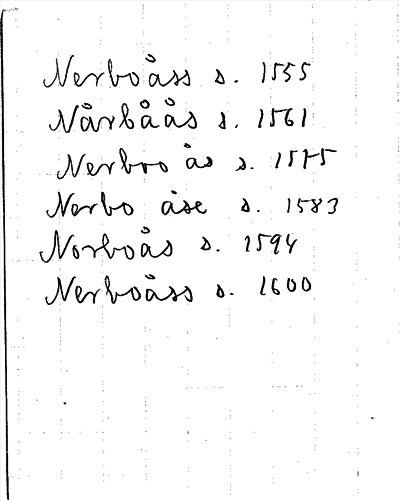 Nerboåss s. 1555
Nårbåås s. 1561
Nerboo ås s. 1575
Nerbo åse s. 1583
Norboås s. 1594
Nerboåss s. 1600